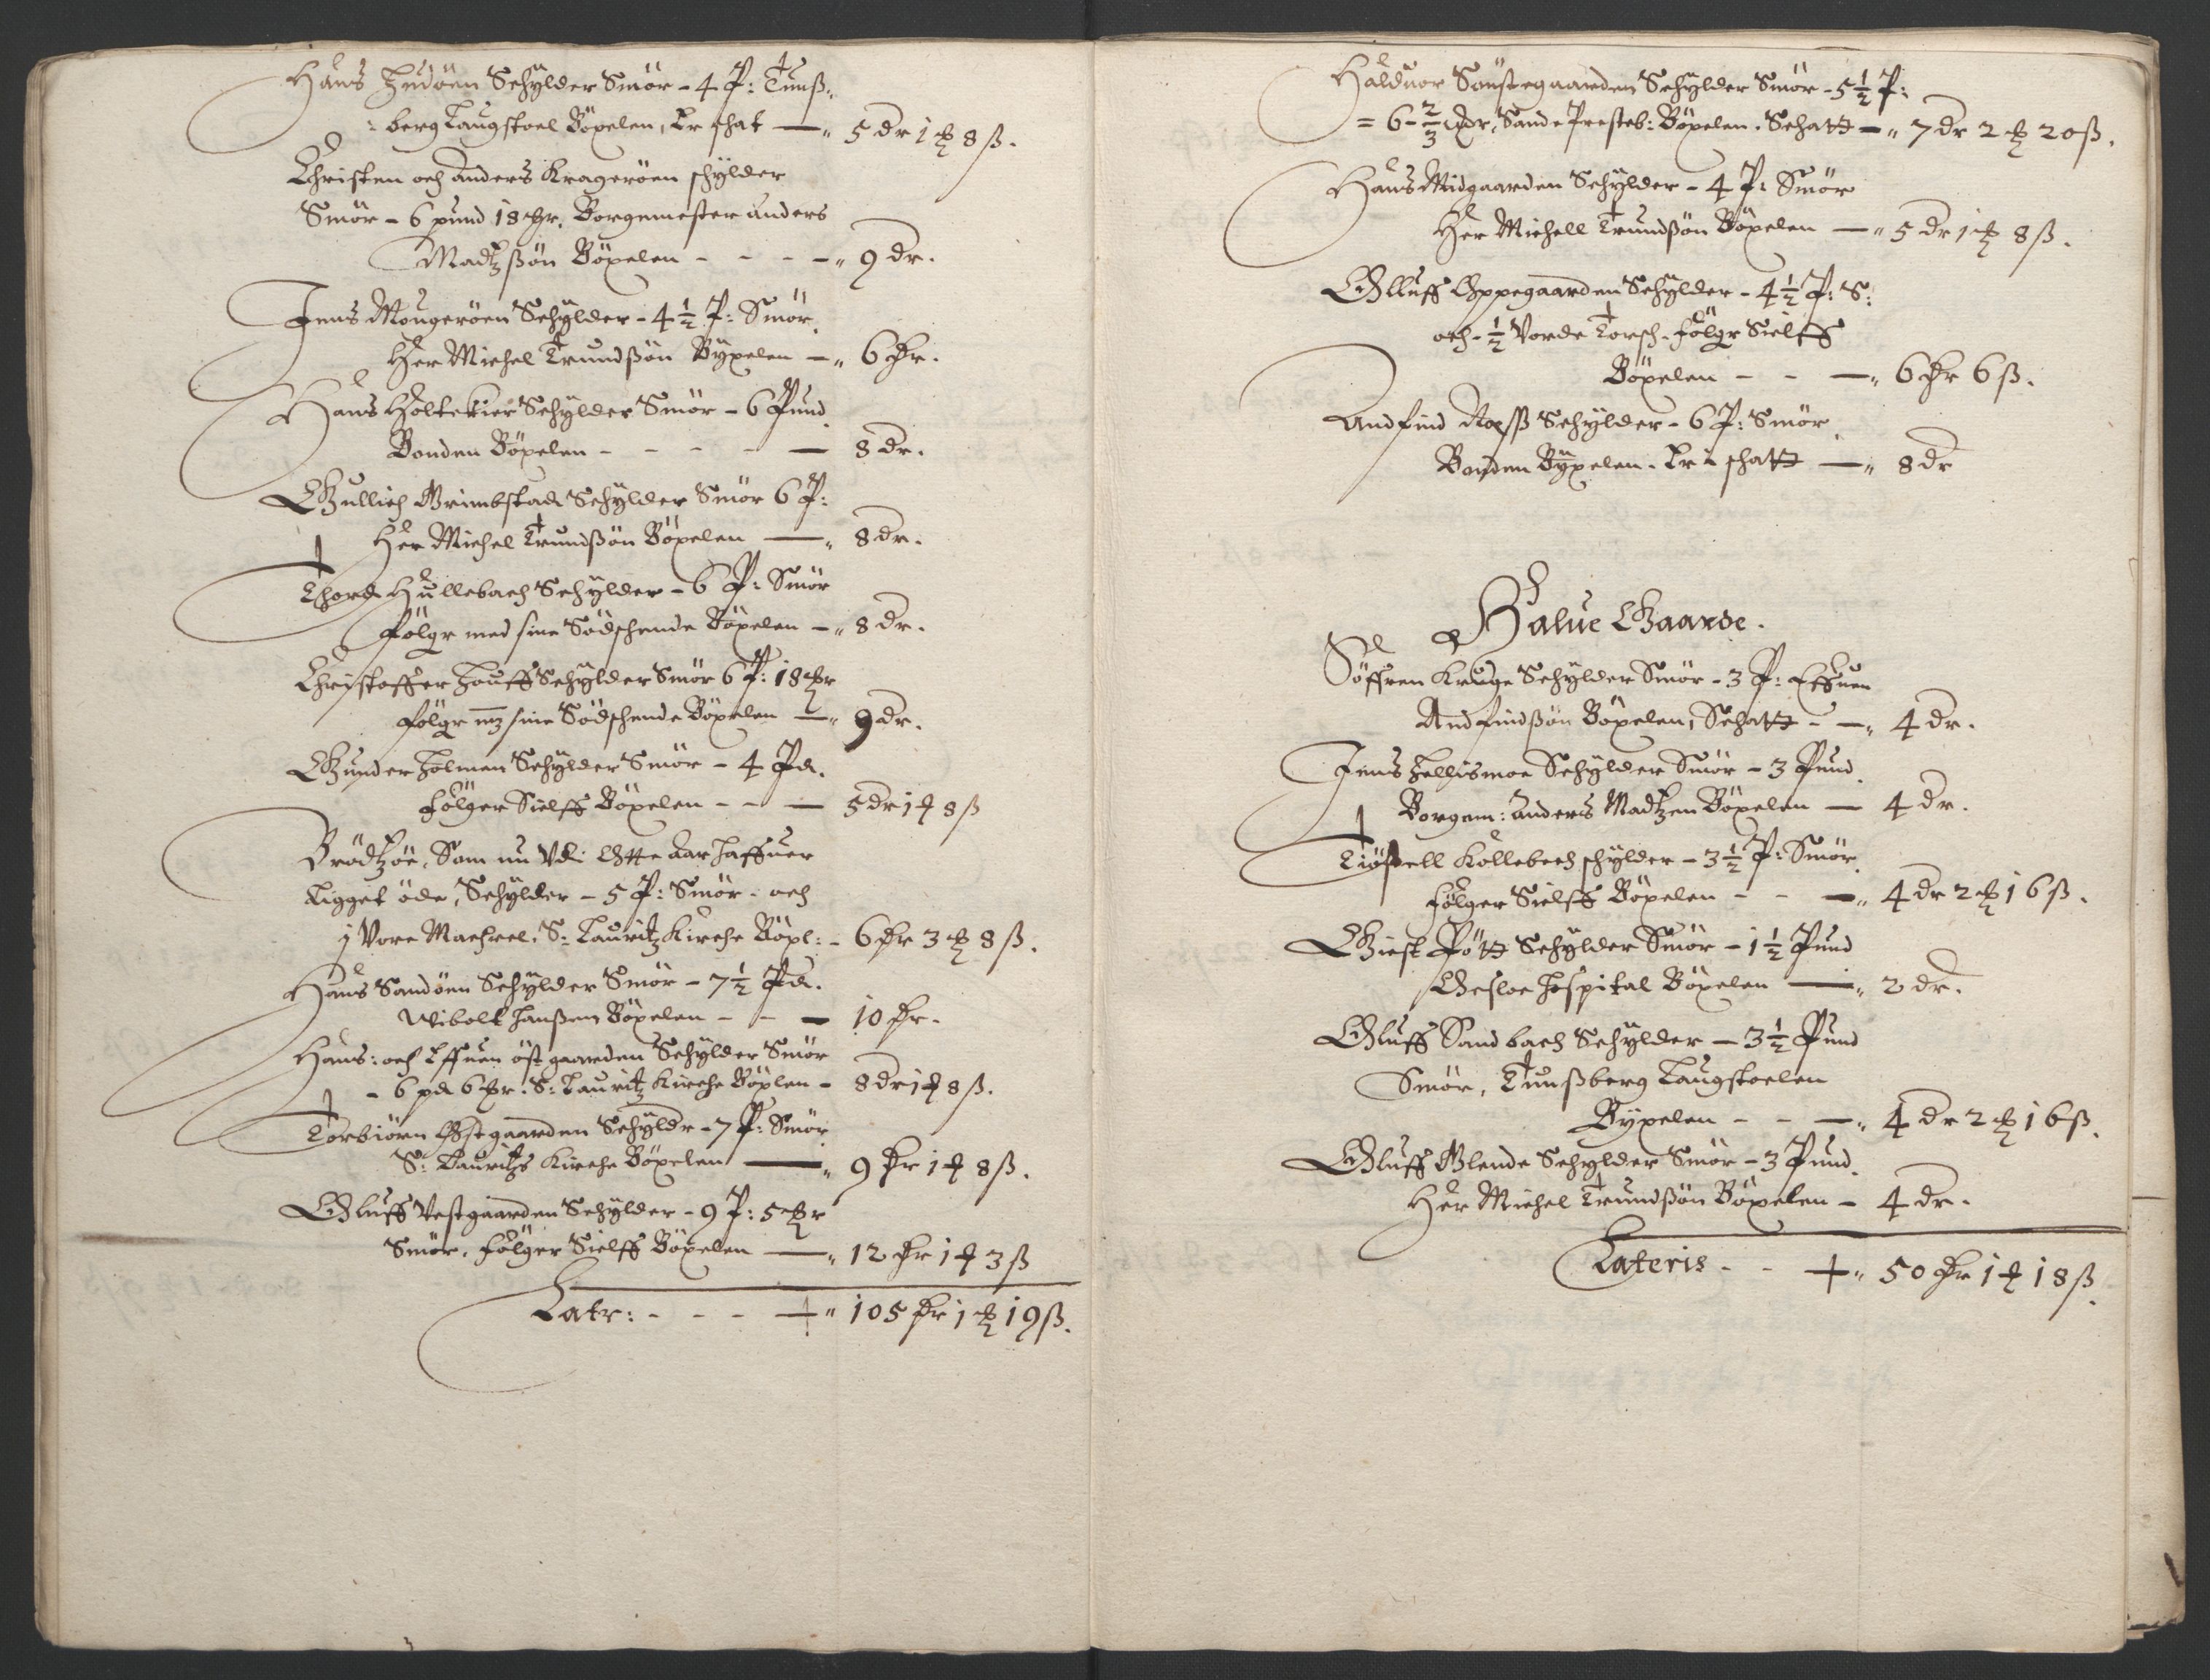 Hans Huidöen Schylder Smör - 4 P: Tunß-
berg Laugstoel Böxelen, Er schat — 5 dr 1 ort 8 ß.
Christen och Anders Krageröen schylder
Smör - 6 pund 18 mr. Borgemester Anders
Madtzßön Böxelen - - - - 9 dr.
Jens Mougeröen Schylder - 4 1/2 P: Smör
Her Michel Trundßön Byxelen — 6 dr.
Hans Holtekier Schylder Smör - 6 Pund
Bonden Böxelen - - - - — 8 dr.
Gullich Grimbstad Schylder Smör 6 P:
Her Michel Trundßön Böxelen — 8 dr.
Thord Hullebach Schylder - 6 P: Smör
Fölgr med sine Södschende Böxelen — 8 dr.
Christoffer Houff Schylder Smör 6 P: 18 mr
Fölgr mz sine Södschende Böxelen — 9 dr.
Gunder Holmen Schylder Smör - 4 Pd.
Fölger Sielff Böxelen - - — 5 dr 1 ort 8 ß
Brödtzöe, Som nu Vdi Otte Aar haffuer
Ligget öde, Schylder - 5 P: Smör - och
j Vore Machrel, S: Lauritz Kirche Böxl: - 6 dr 3 ort 8 ß.
Hans Sandöen Schylder Smör - 7 1/2 Pd.
Wibolt Hanßen Böxelen - - — 10 dr.
Hans: och Effuen Östgaarden Schylder Smör
- 6 pd 6 mr. S: Lauritz Kirche Böxlen - 8 dr 1 ort 8 ß.
Torbiörn Östgaarden Schyldr - 7 P: Smör
S: Lauritzs Kirche Böxelen — 9 dr 1 ort 8 ß.
Oluff Vestgaarden Schylder - 9 P: 5 mr
Smör, Fölger Sielff Böxelen — 12 dr 1 ort 3 ß
Latr: - - - — 105 dr 1 ort 19 ß.
Halduor Söustegaarden Schylder Smör - 5 1/2 P:
= 6 - 2/3 mr, Sande Presteb: Böxelen. Schatt — 7 dr 2 ort 20 ß.
Hans Midgaarden Schylder - 4 P: Smör
Her Michell Trundßön Böxelen — 5 dr 1 ort 8 ß.
Olluff Oppegaarden Schylder - 4 1/2 P: S:
och - 1/2 Vorde Torsch - Fölgr Sielff
Böxelen - - — 6 dr 6 ß.
Andfind Schylder - 6 P: Smör
Bonden Byxelen. Er i schatt — 8 dr
Halue Gaarde.
Söffren Kruge Schylder Smör - 3 P: Effuen
Andfindßön Böxelen, Schatt - — 4 dr.
Jens Hellismoe Schylder Smör - 3 Pund
Borgem: Anders Madtzen Böxelen — 4 dr.
Tiöstell Kollebech schylder - 3 1/2 P: Smör
Fölger Sielff Böxelen - - — 4 dr 2 ort 16 ß.
Giest Pött Schylder Smör - 1 1/2 Pund
Oesloe Hospital Böxelen — 2 dr.
Oluff Sandbach Schylder — 3 1/2 Pund
Smör, Tunßberg Laugstoelen
Byxelen - - — 4 dr 2 ort 16 ß.
Oluff Glende Schylder Smör - 3 Pund
Her Michel Trundßön Böxelen - 4 dr.
Lateris - - — 50 dr 1 ort 18 ß.